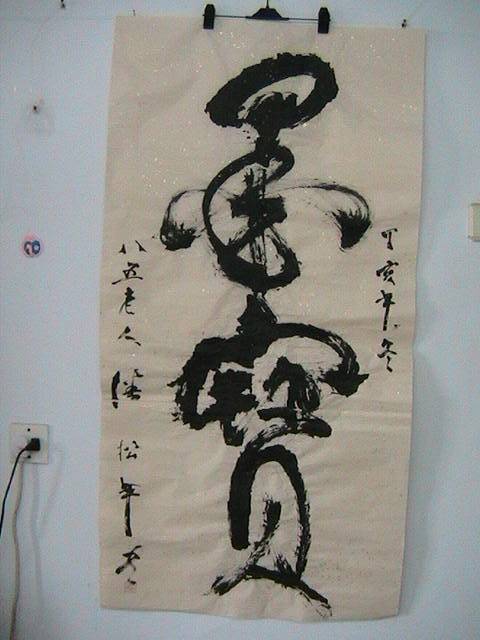 丁亥年冬
墨寶
八五老人潘松年书